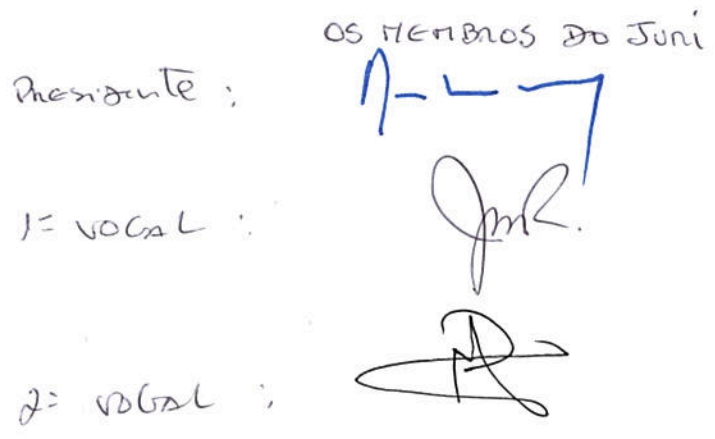 OS MEMBROS DO JURI
Presidente :
1º VOGAL :
2º VOGAL :